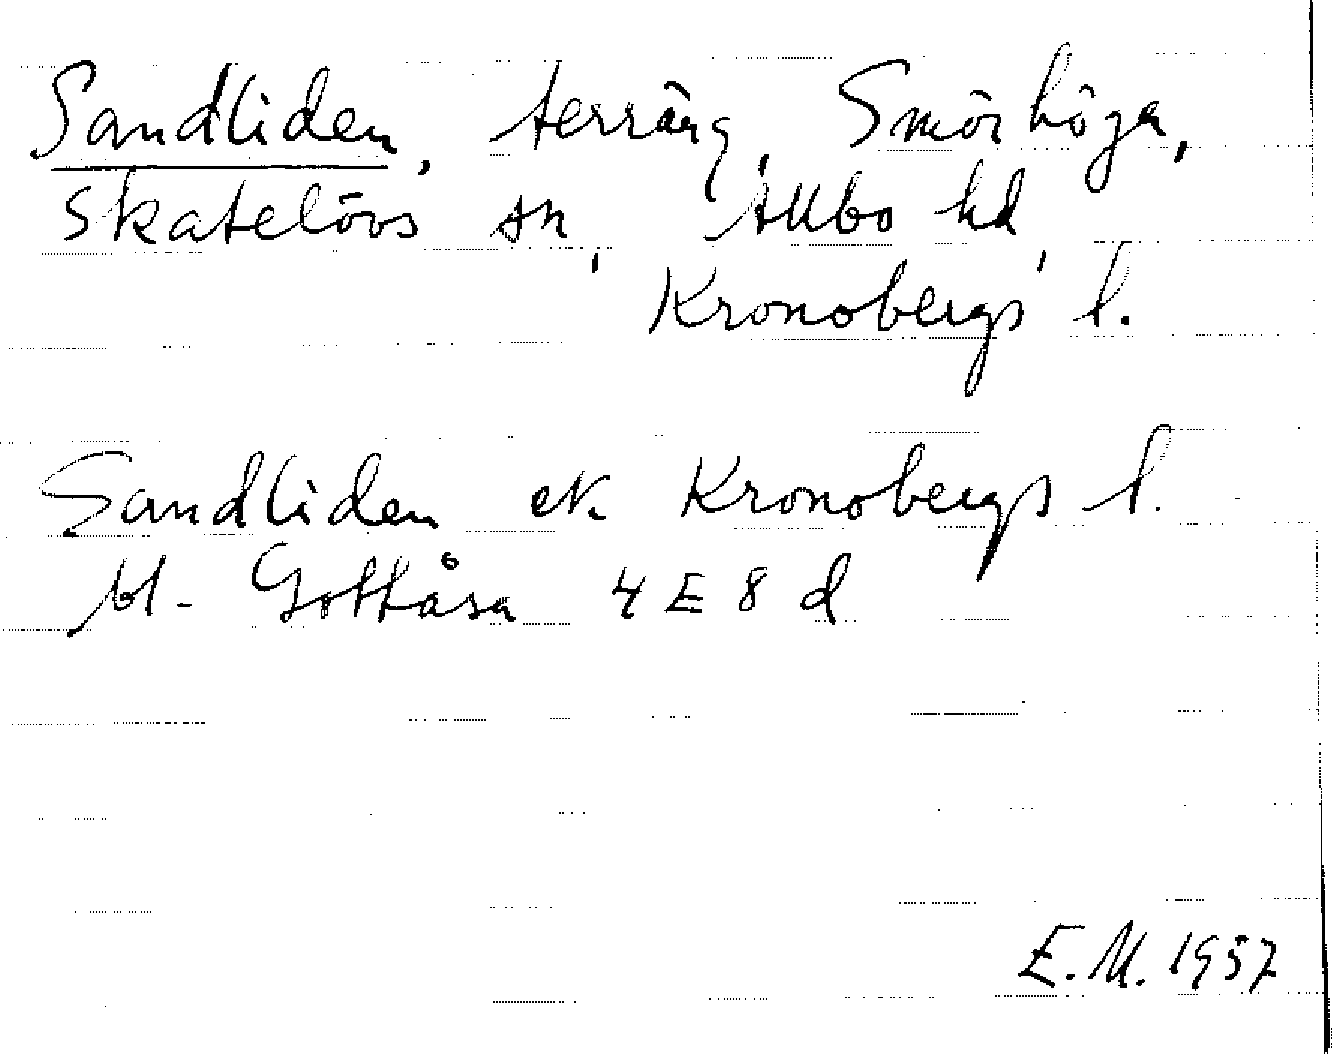 Sandliden, terräng, Smörhöga,
Skatelövs sn, Allbo hd,
Kronobergs l.
Sandliden ek. Kronobergs l.
bl. Gottåsa 4 E 8 d
E.M. 1957